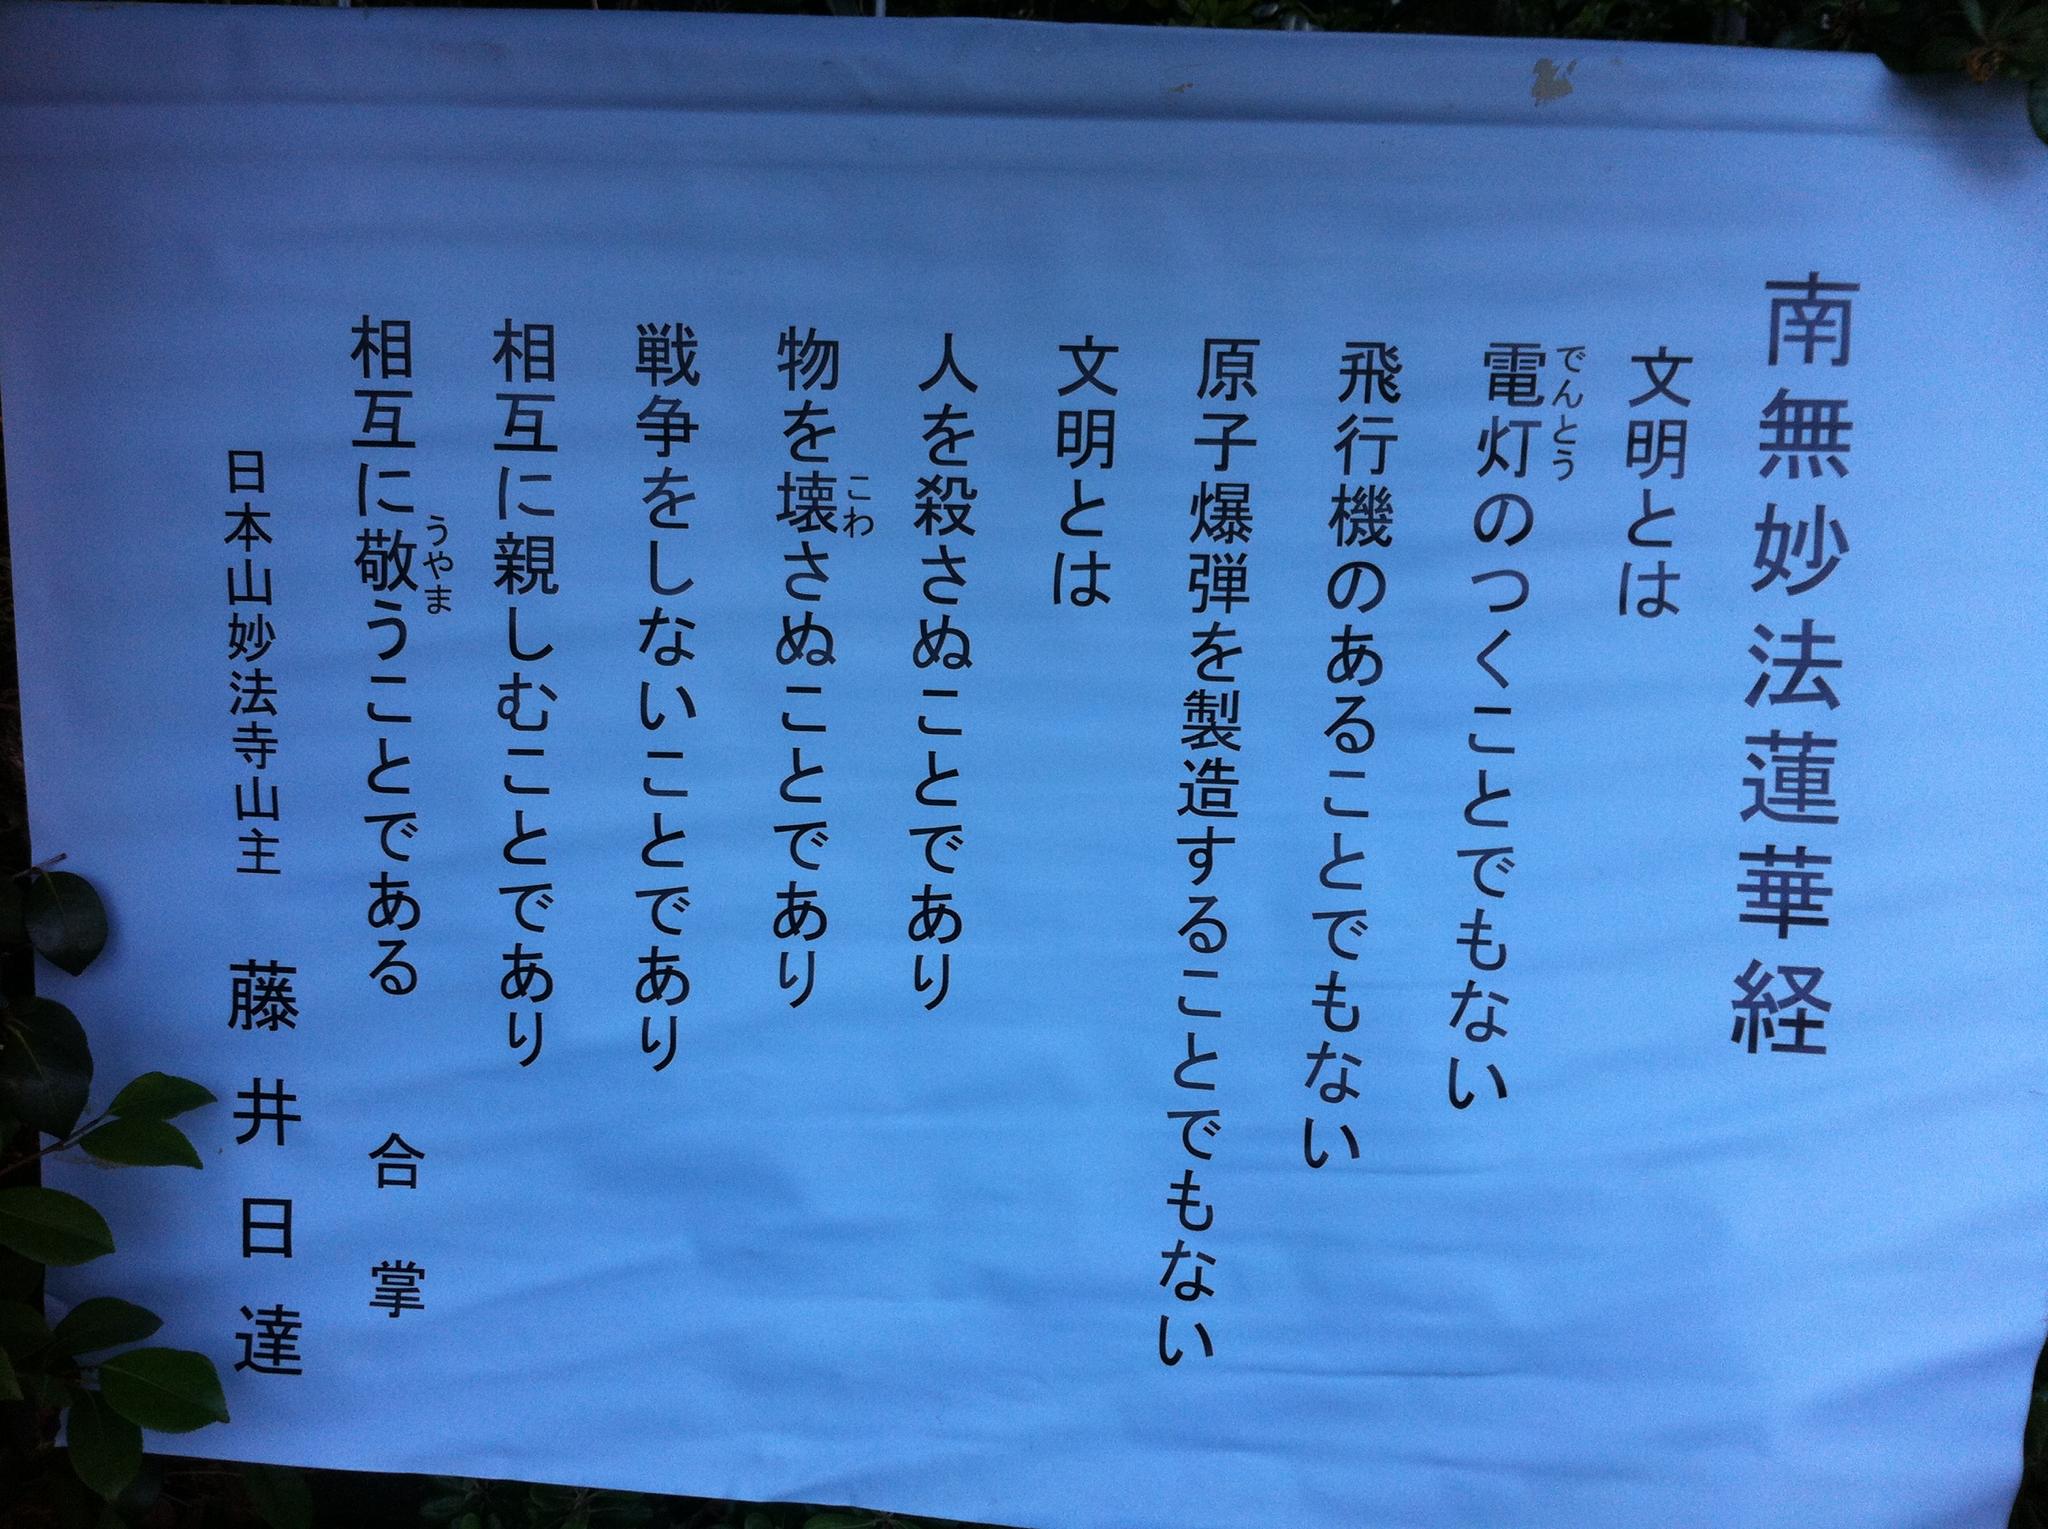 南無妙法蓮華経
文明とは
電灯のつくことでもない
でんとう
飛行機のあることでもない
原子爆弾を製造することでもない
文明とは
人を殺さぬことであり
物を壊さぬことであり
こわ
戦争をしないことであり
相互に親しむことであり
相互に敬うことである 合掌
うやま
日本山妙法寺山主 藤井日達